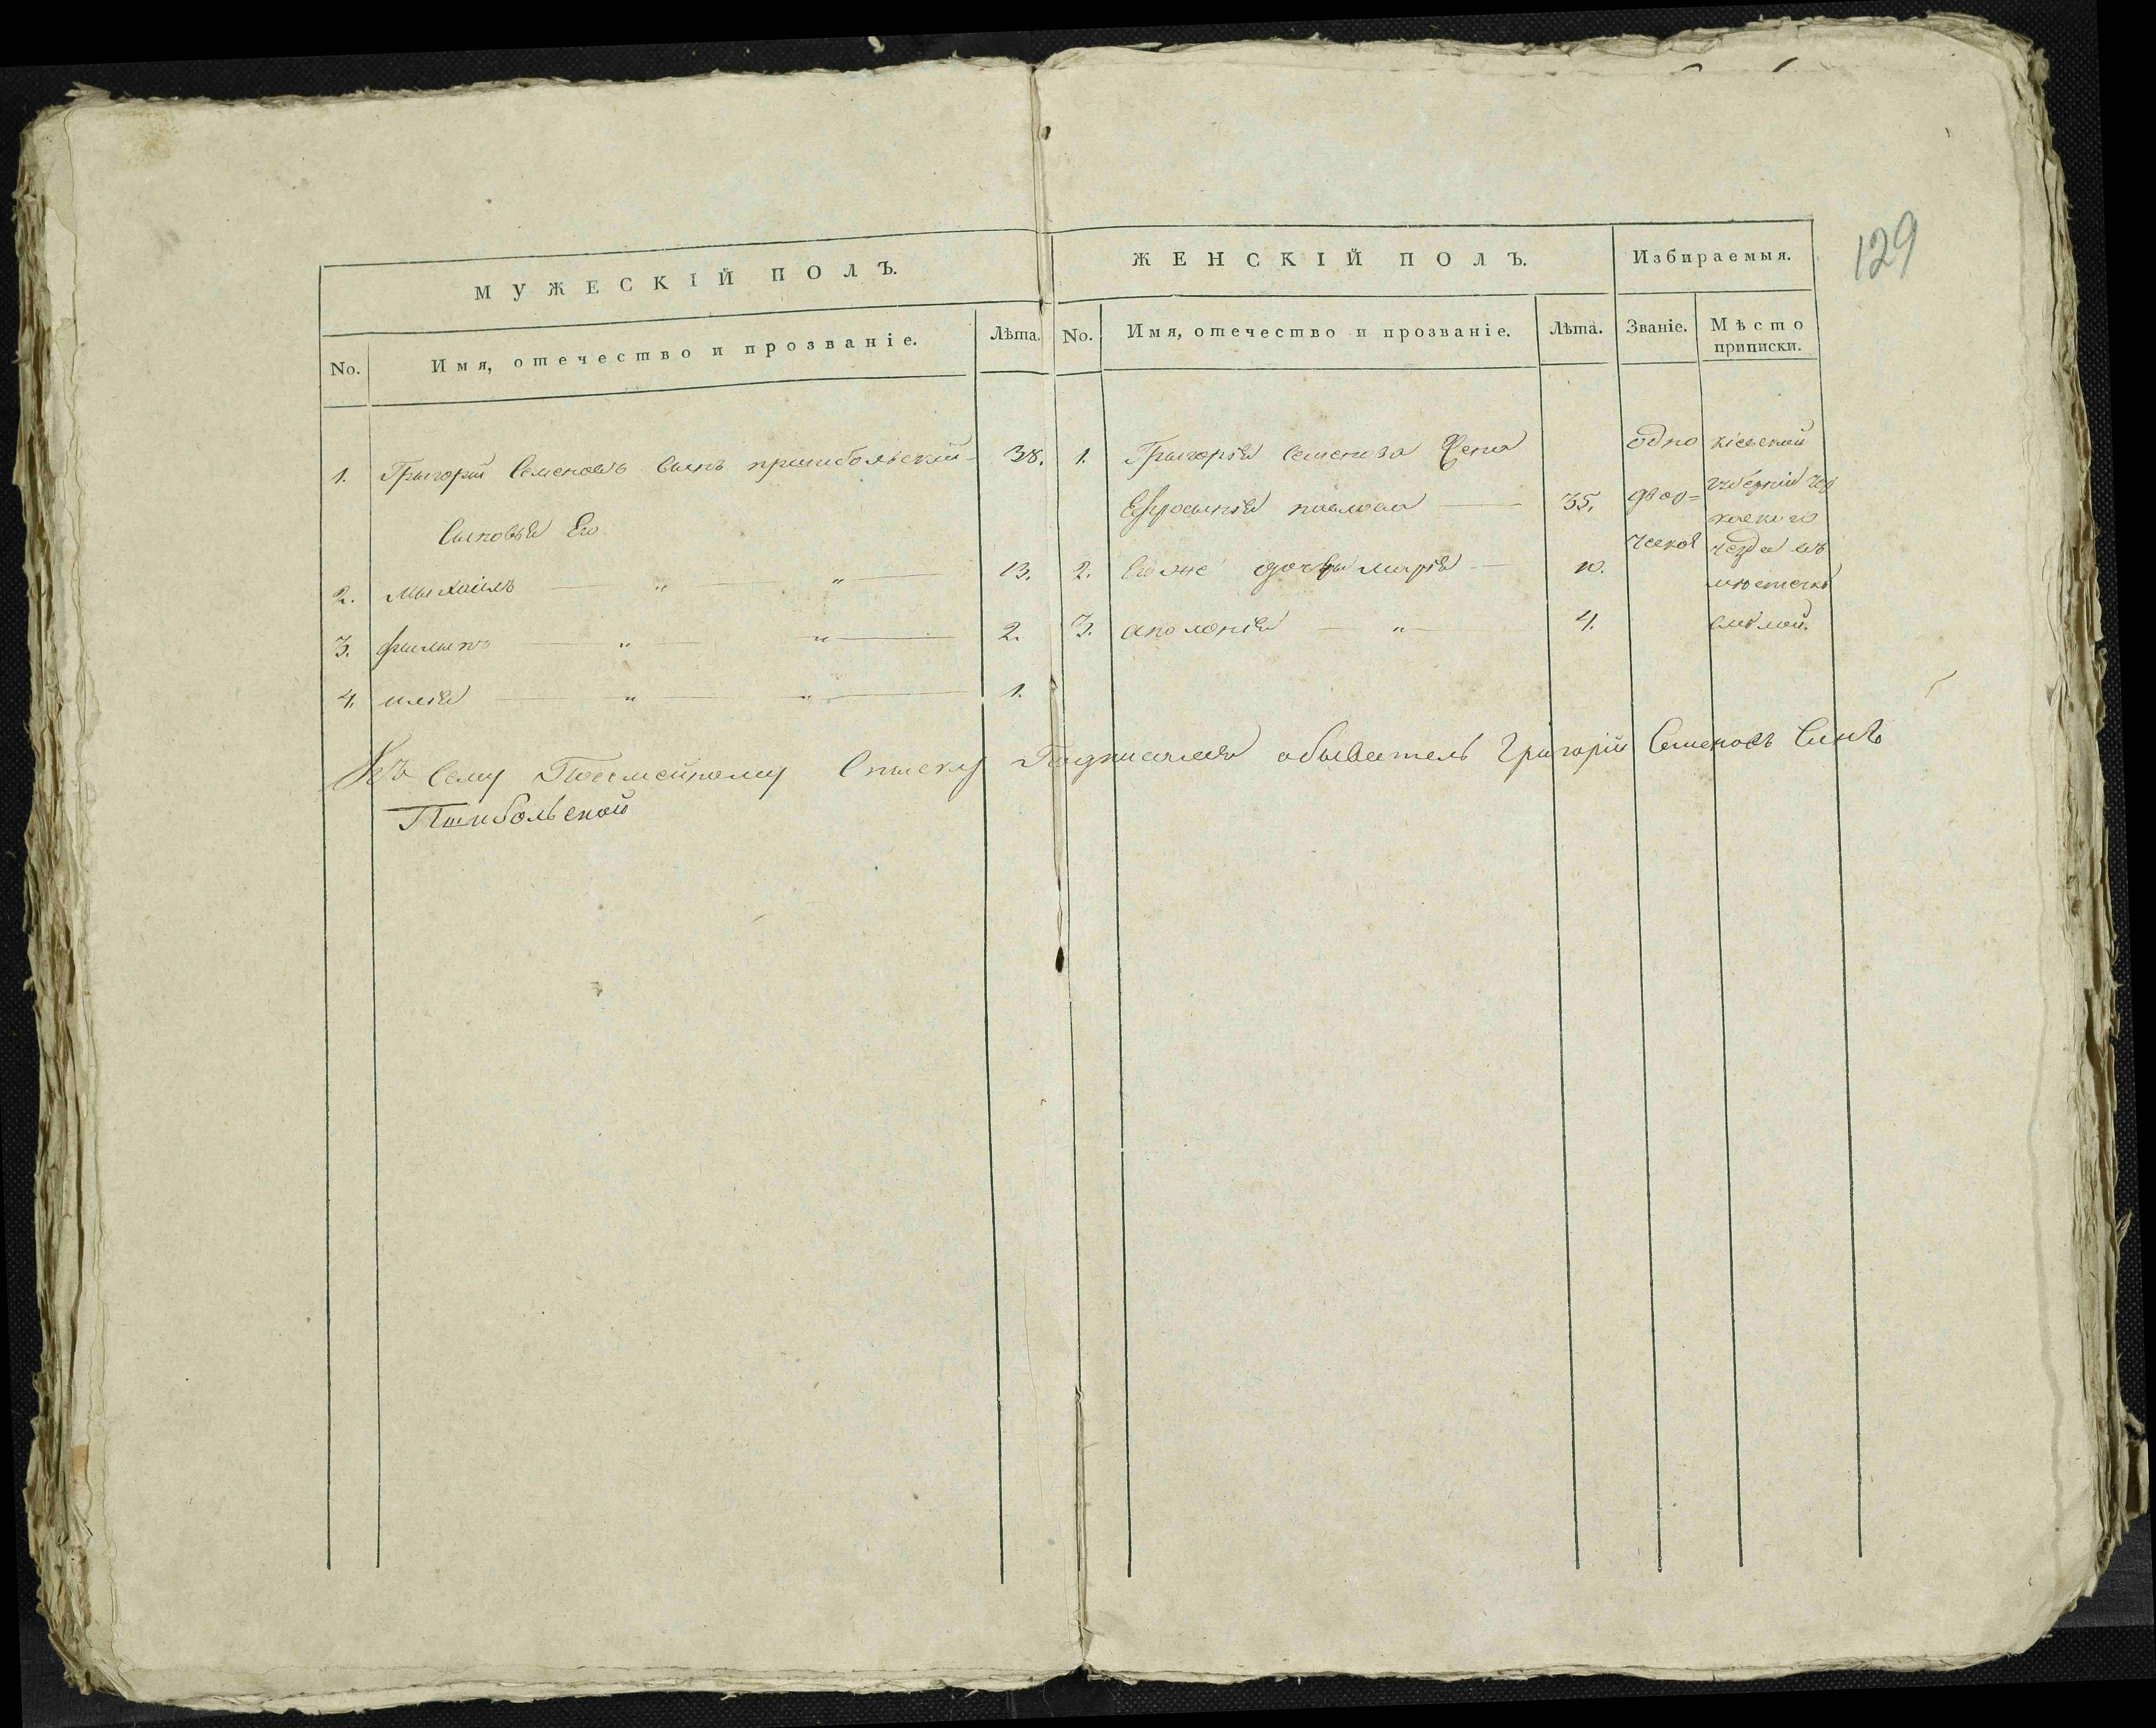 129
МУЖЕСКІЙ ПОЛЪ.
ЖЕНСКІЙ ПОЛЪ.
Избираемыя.
No.
Имя, отечество и прозваніе.
Лѣта.
No.
Имя, отечество и прозваніе.
Лѣта.
Званіе.
Мѣсто
приписки.
1. Григорій Семеновъ Сынъ 38.
Сыновья Его
2. Михаилъ — „ — „ — 13.
3. филипъ — „ — „ — 2.
4. илія — „ — „ — 1.
1. Григорія Семенова Жена
Ефросинія павлова — 35.
2. Егоже дочери марія — 10.
3. аполонія — „ — 4.
одно
двор=
цевъ
кіевской
губерніи Чер
каскаго
уезда въ
местечкѣ
смѣлой.
Къ Сему Посемейному Списку Подписался обыватель Григорій Семеновъ Синъ
Пшибольской